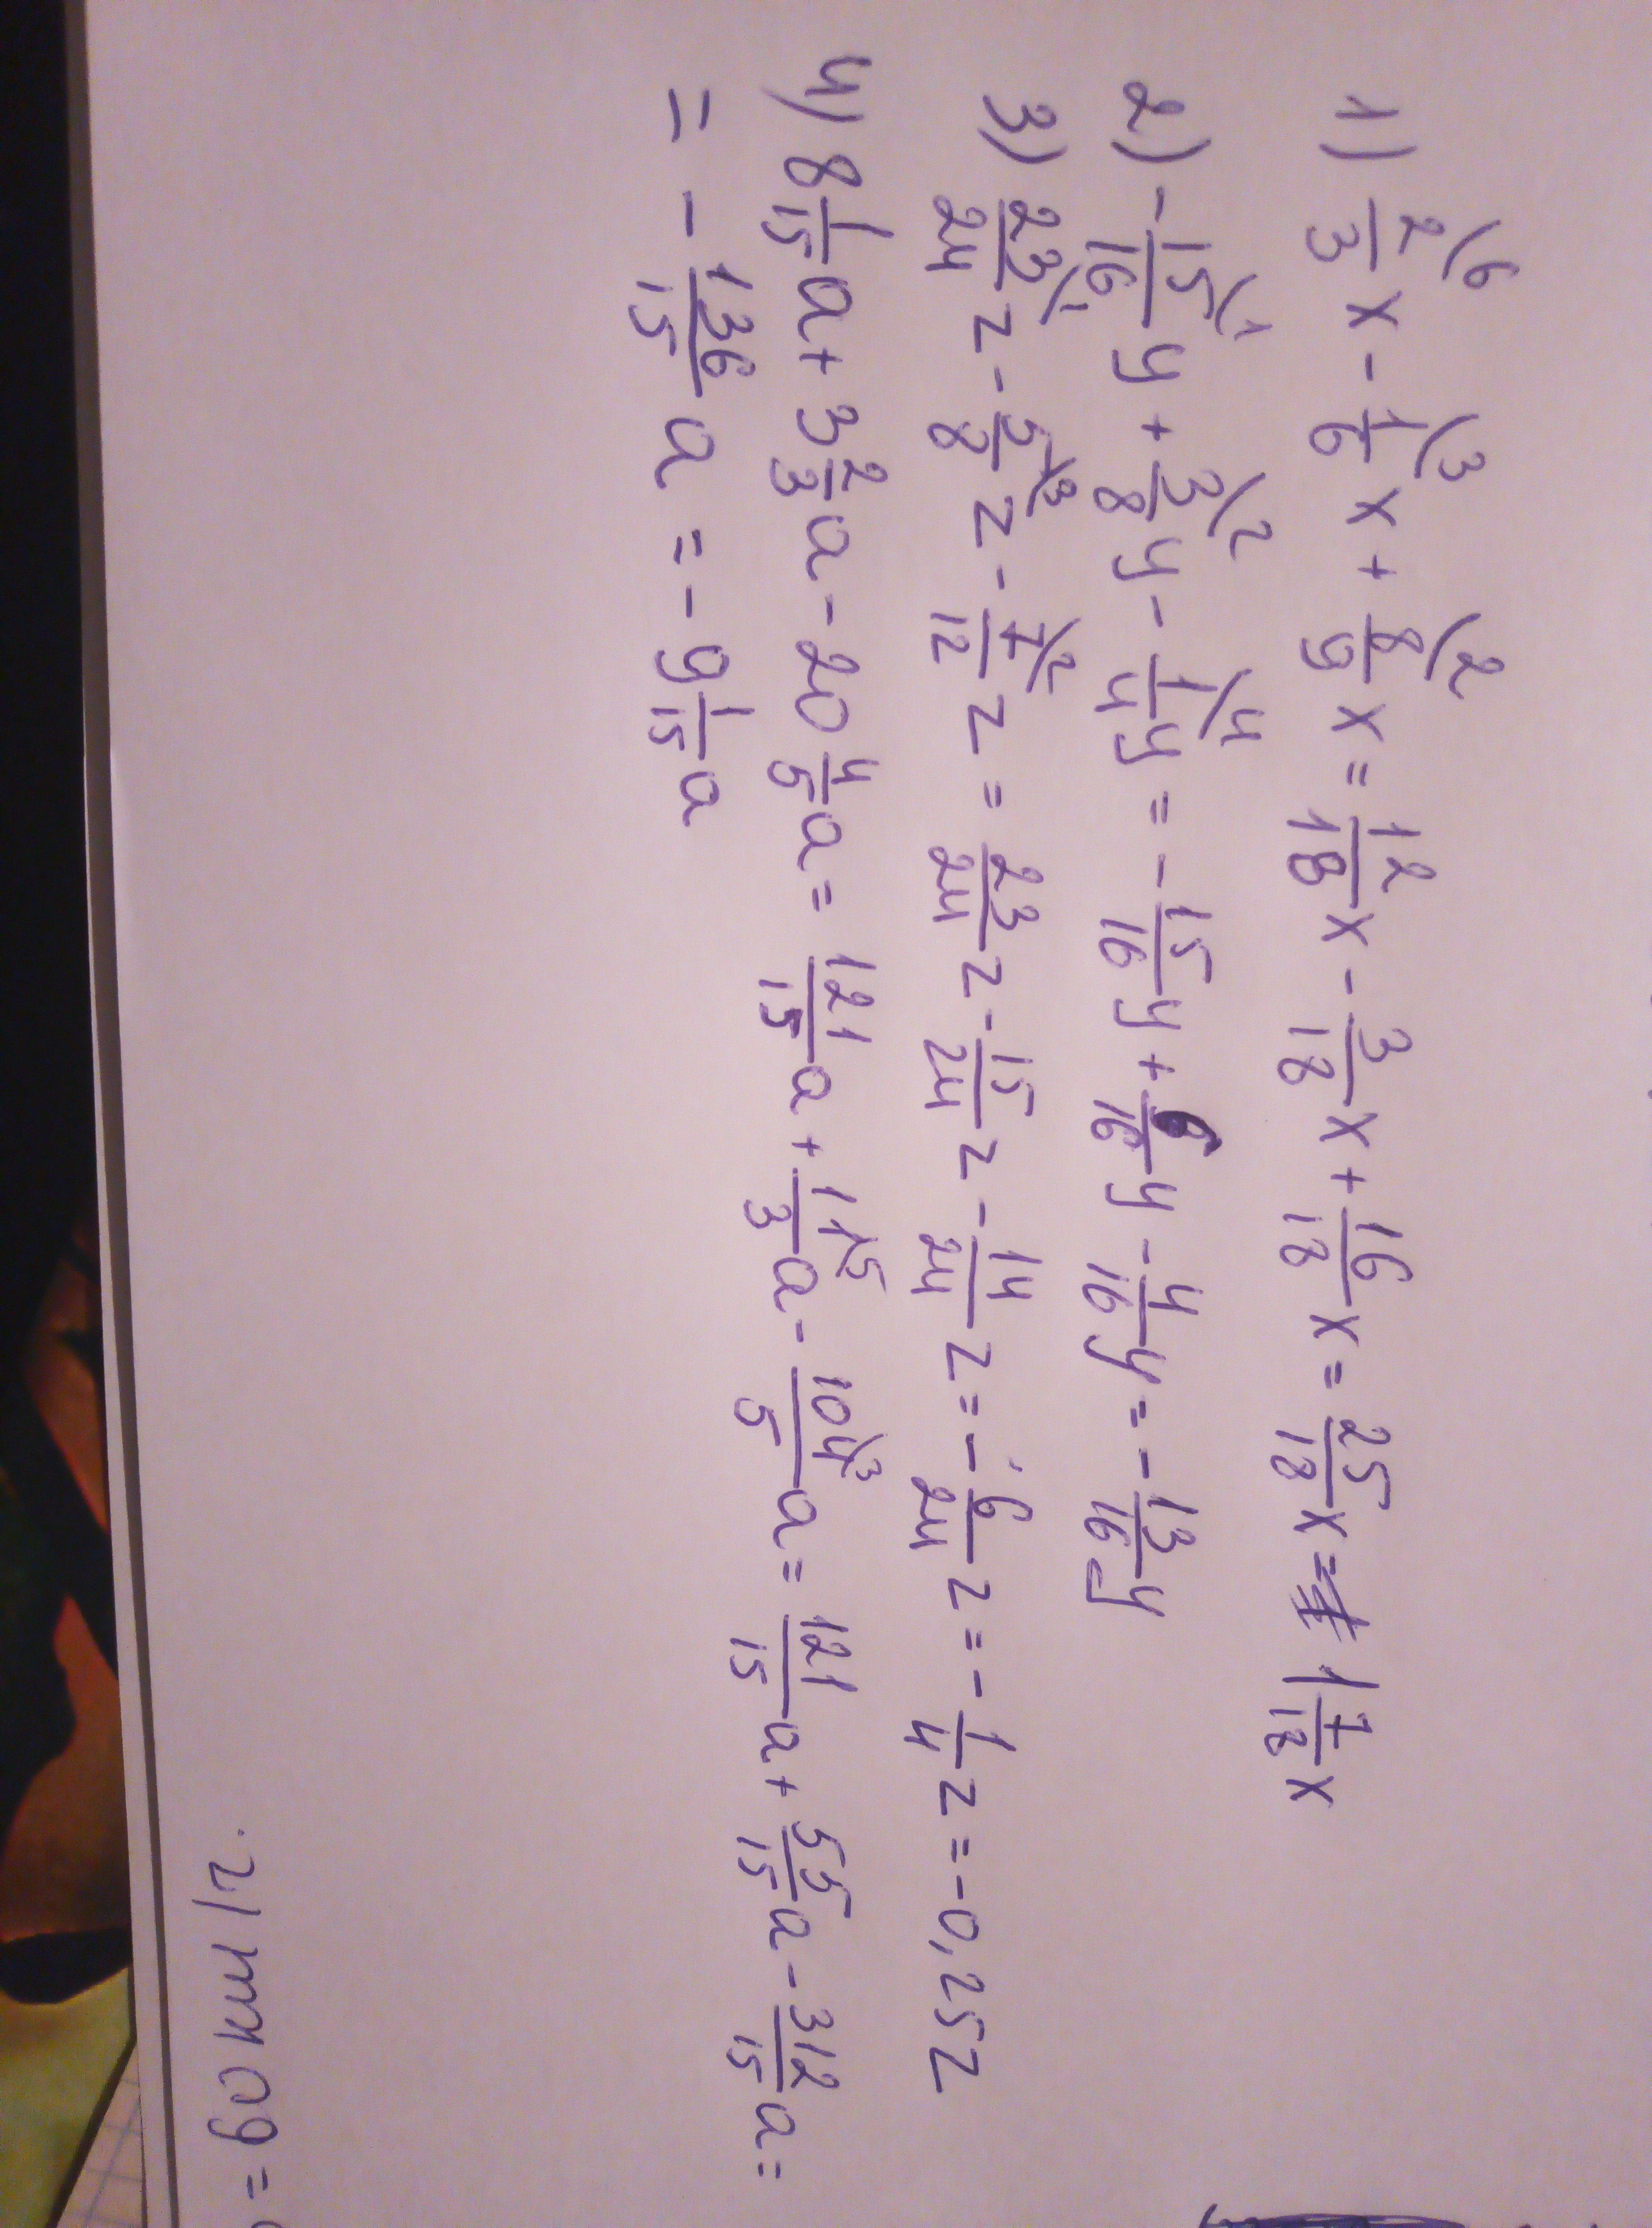 1) 2/3^6 x - 1/6^3 x + 8/9^2 x = 12/18 x - 3/18 x + 16/18 x = 25/18 x = 1 7/18 x
2) - 15/16^1 y + 3/8^2 y - 1/4^4 y = - 15/16 y + 6/16 y - 4/16 y = - 13/16 y
3) 23/24^1 z - 5/8^3 z - 7/12^2 z = 23/24 z - 15/24 z - 14/24 z = - 6/24 z = - 1/4 z = -0,25z
4) 8 1/15 a + 3 2/3 a - 20 4/5 a = 121/15 a + 11/3^5 a - 104/5^3 a = 121/15 a + 55/15 a - 312/15 a =
= - 136/15 a = - 9 1/15 a